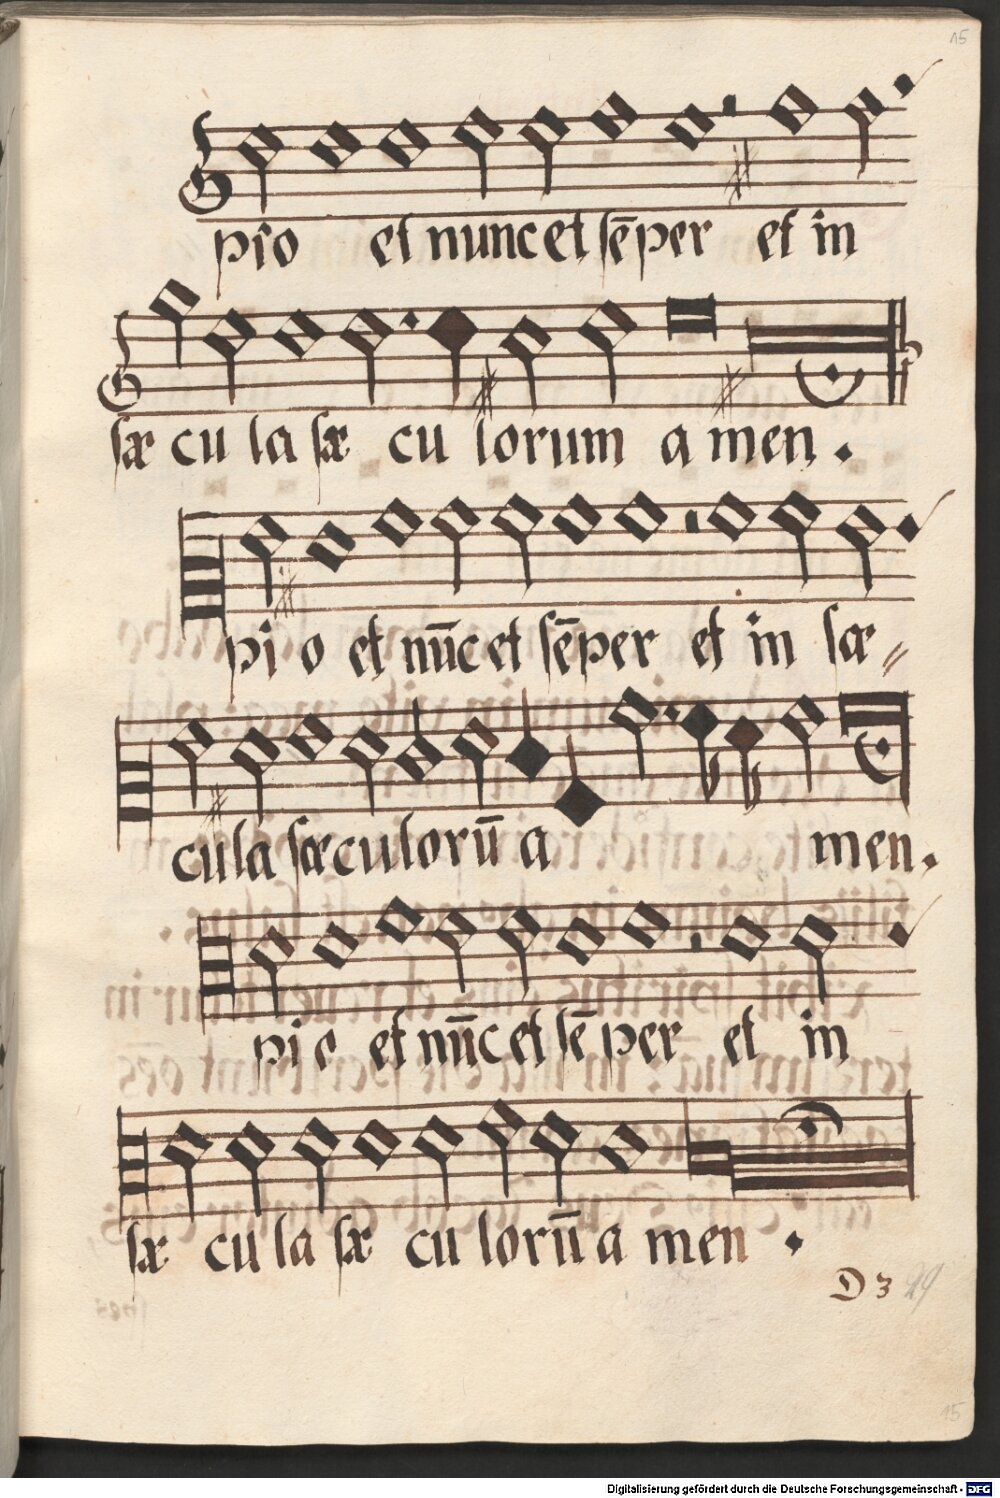 15
pio et nunc et sēper et in
sæ cu la sæ cu lorum a men .
pi o et nūc et sēper et in sæ=
cula sæculorū a men.
pi o et nūc et sē per et in
sæ cu la sæ cu lorū a men .
D 3 29
15
Digitalisierung gefördert durch die Deutsche Forschungsgemeinschaft - DFG